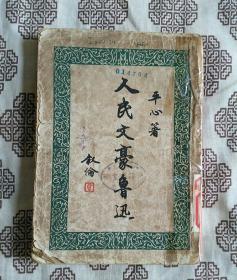 014704
平心著
人民文豪魯迅
叙倫